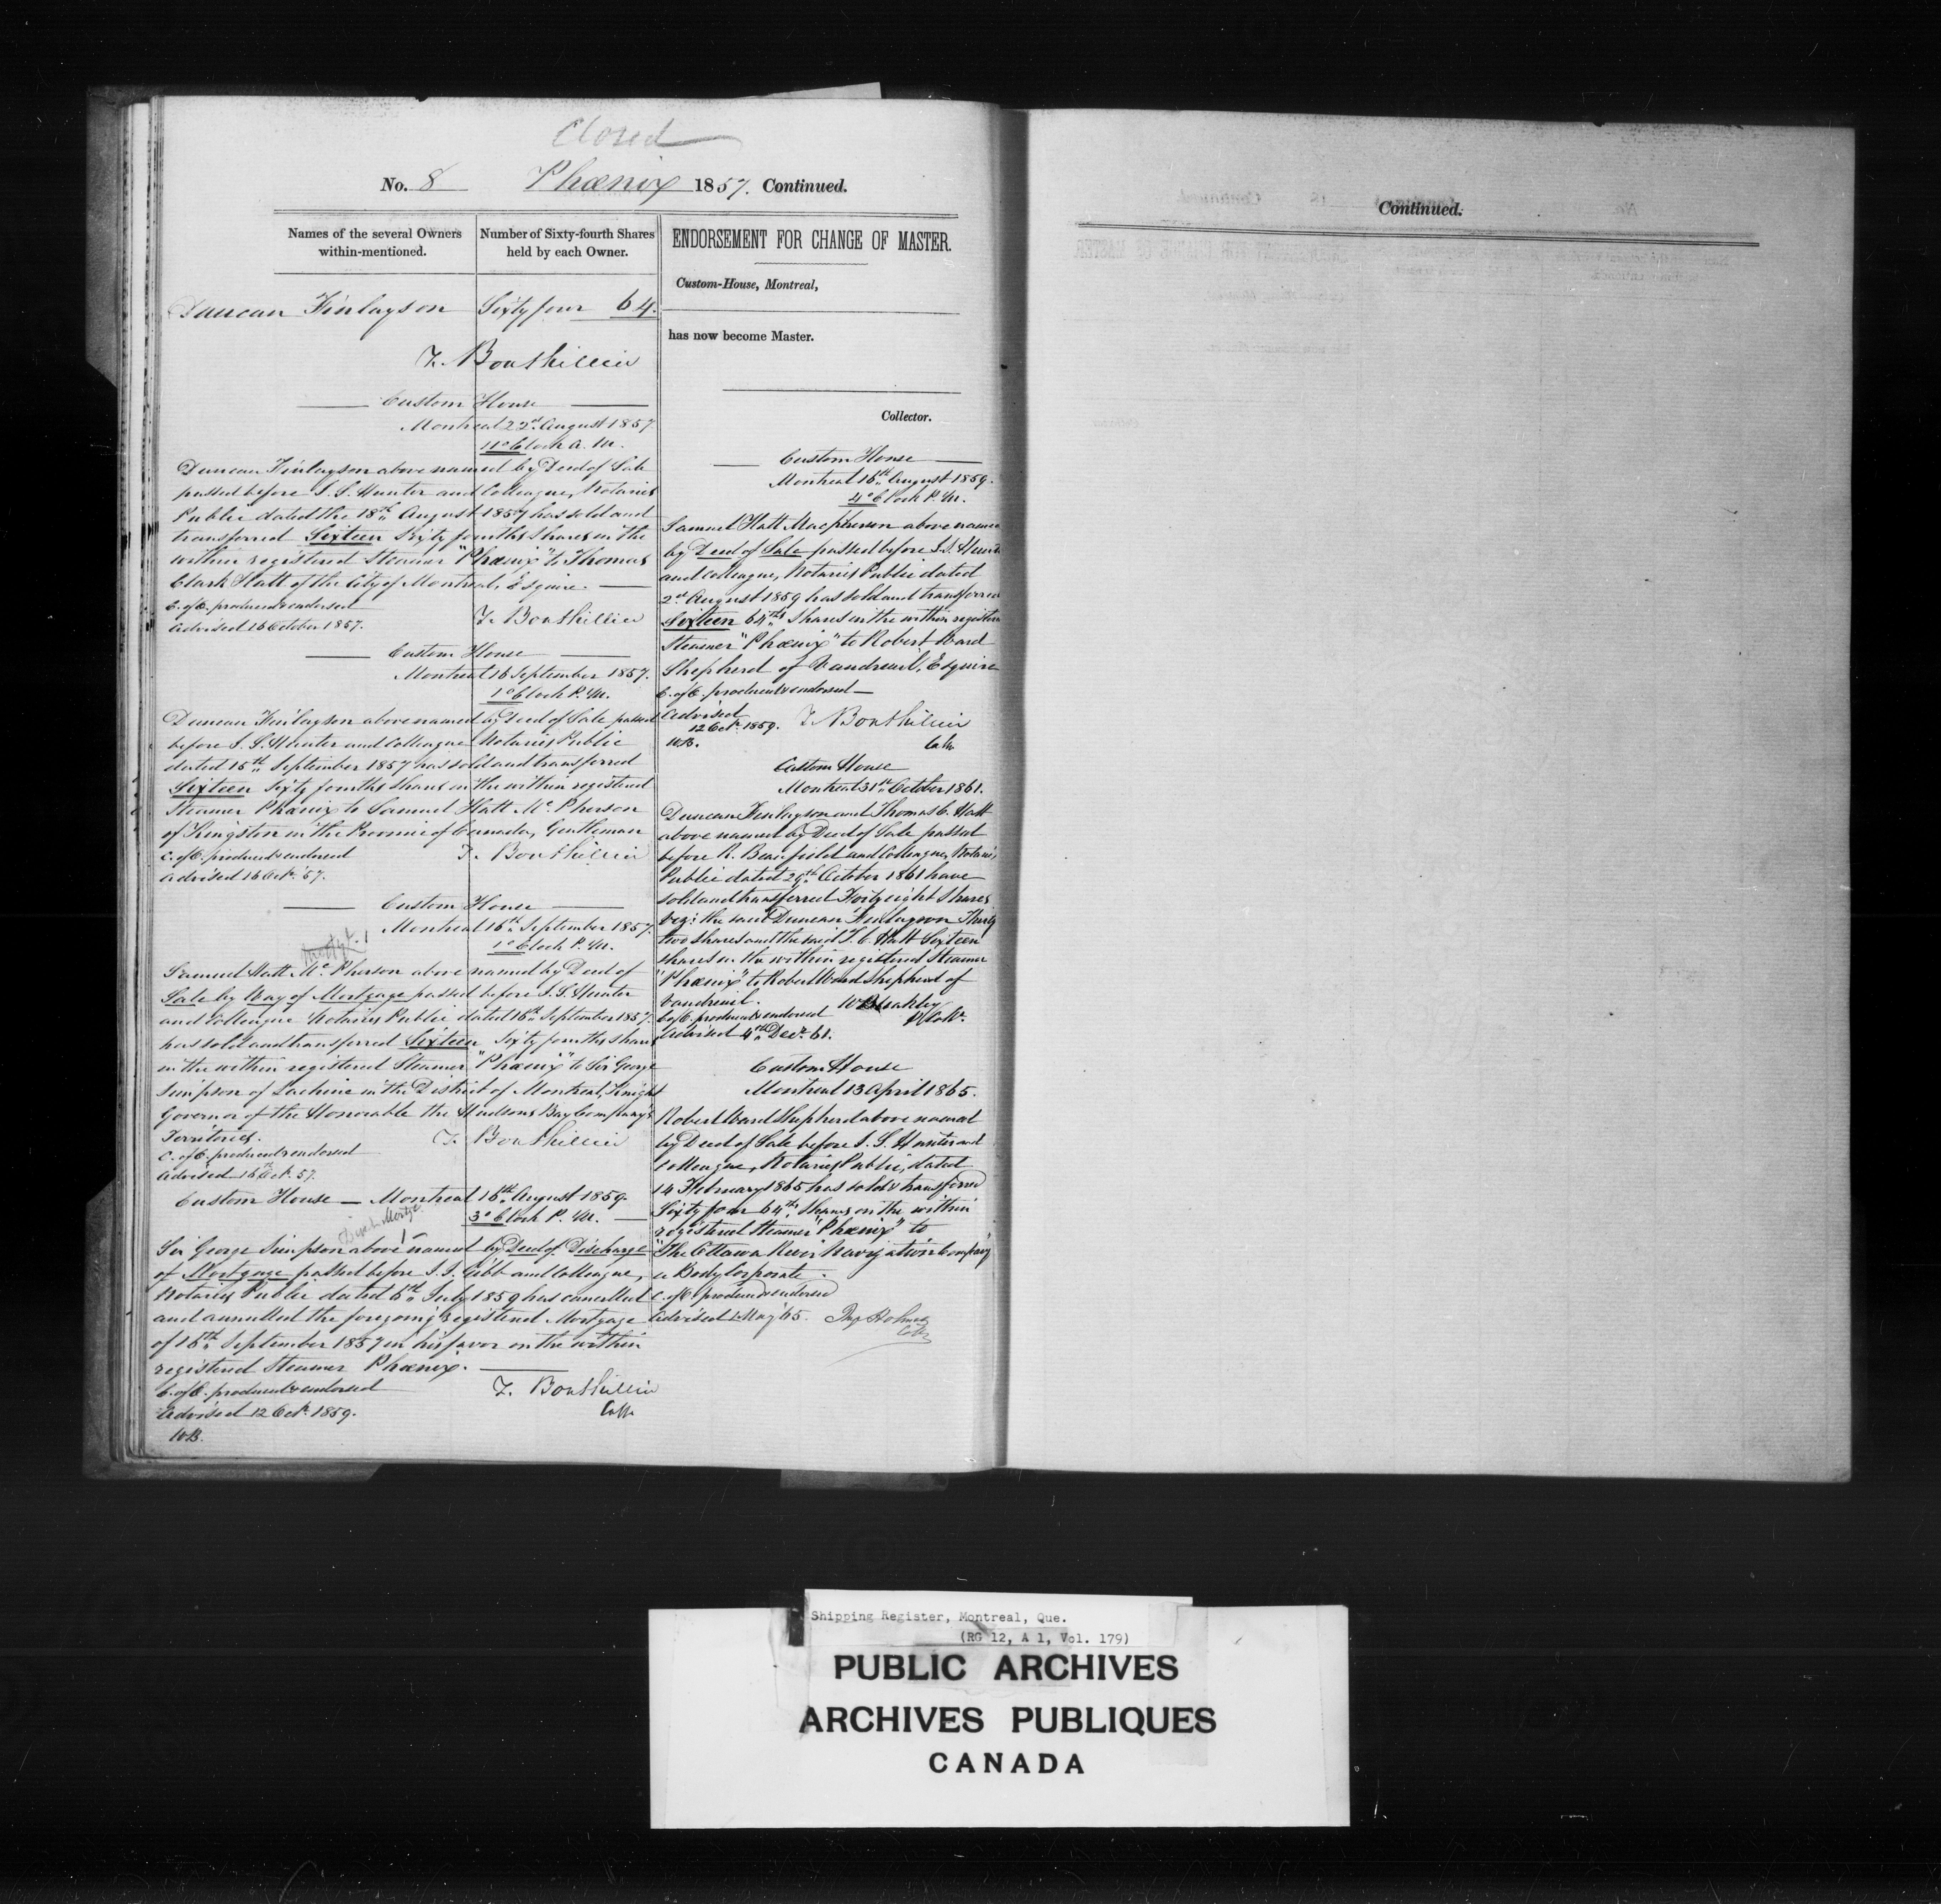 Closed
No. 8 Phœnix 1857. Continued.
Names of the several Owners within-mentioned.
Number of Sixty-fourth Shares held by each Owner.
Duncan Finlayson Sixty four 64.
T. Bouthillier
Custom House
Montreal 22d. August 1857
11 o'Clock A. M.
Duncan Finlayson above named by Deed of Sale
passed before J. S. Hunter and Colleague, Notaries
Public dated the 18th August 1857 has sold and
transferred Sixteen Sixty fourths Shares in the
within registered Steamer "Phœnix" to Thomas
Clark Hatt of the City of Montreal, Esquire.
C. of O. produced & endorsed
Advised 16 October 1857.
T. Bouthillier
Custom House
Montreal 16 September 1857.
1 o'Clock P. M.
Duncan Finlayson above named by Deed of Sale passed
before J. S. Hunter and Colleague Notaries Public
dated 15th September 1857 has sold and transferred
Sixteen Sixty fourths Shares in the within registered
Steamer Phœnix to Samuel Hatt Mc.Pherson
of Kingston in the Province of Canada, Gentleman
C. of O. produced & endorsed
Advised 16 Oct. 57.
T. Bouthillier
Custom House
Montreal 16th September 1857.
1 o'Clock P. M.
Mortge. 1
Samuel Hatt Mc.Pherson above named by Deed of
Sale by Way of Mortgage passed before J. S. Hunter
and Colleague Notaries Public dated 16th September 1857.
has sold and transferred Sixteen Sixty fourths Shares
in the within registered Steamer "Phœnix" to Sir George
Simpson of Lachine in the District of Montreal, Knight
Governor of the Honorable the Hudsons Bay Company's
Territories.
T. Bouthillier
C. of O. produced & endorsed
Advised 16th Oct. 57.
Custom House — Montreal 16th August 1859.
3 o'Clock P. M.
Disch. Mortge. 1
Sir George Simpson above named by Deed of Discharge
of Mortgage passed before J. J. Gibb and Colleague,
Notaries Public dated 6th July 1859 has cancelled
and annulled the foregoing registered Mortgage
of 16th September 1857 in his favor on the within
registered Steamer Phœnix.
C. of O. produced & endorsed
T. Bouthillier
Collr
Advised 12 Oct. 1859.
W.B.
ENDORSEMENT FOR CHANGE OF MASTER.
Custom-House, Montreal,
has now become Master.
Collector.
Custom House
Montreal 16th August 1859.
4 o'Clock P. M.
Samuel Hatt Macpherson above named
by Deed of Sale passed before J. S. Hunter
and Colleague, Notaries Public dated
2d. August 1859 has sold and transferred
Sixteen 64ths Shares in the within registered
Steamer "Phœnix" to Robert Ward
Shepherd of Vaudreuil, Esquire
C. of O. produced & endorsed —
Advised
12 Oct. 1859.
W.B.
T. Bouthillier
Collr
Custom House
Montreal 31st October 1861.
Duncan Finlayson and Thomas C. Hatt
above named by Deed of Sale passed
before R. Beaufield and Colleague, Notaries
Public dated 29th October 1861 have
sold and transferred Forty eight Shares
viz: the said Duncan Finlayson Thirty
two shares and the said T. C. Hatt Sixteen
shares in the within registered Steamer
"Phœnix" to Robert Ward Shepherd of
Vaudreuil.
C. of O. produced & endorsed
Advised 4th Decr. 61.
Custom House
Montreal 13 April 1865.
Robert Ward Shepherd above named
by Deed of Sale before J. S. Hunter and
Colleague, Notaries Public, dated
14 February 1865 has sold & transferred
Sixty four 64ths Shares in the within
registered Steamer "Phœnix" to
"The Ottawa River Navigation Company"
a Body Corporate.
C. of O. produced & endorsed
Advised 1 May '65.
Continued.
Shipping Register, Montreal, Que.
(RG 12, A 1, Vol. 179)
PUBLIC ARCHIVES
ARCHIVES PUBLIQUES
CANADA